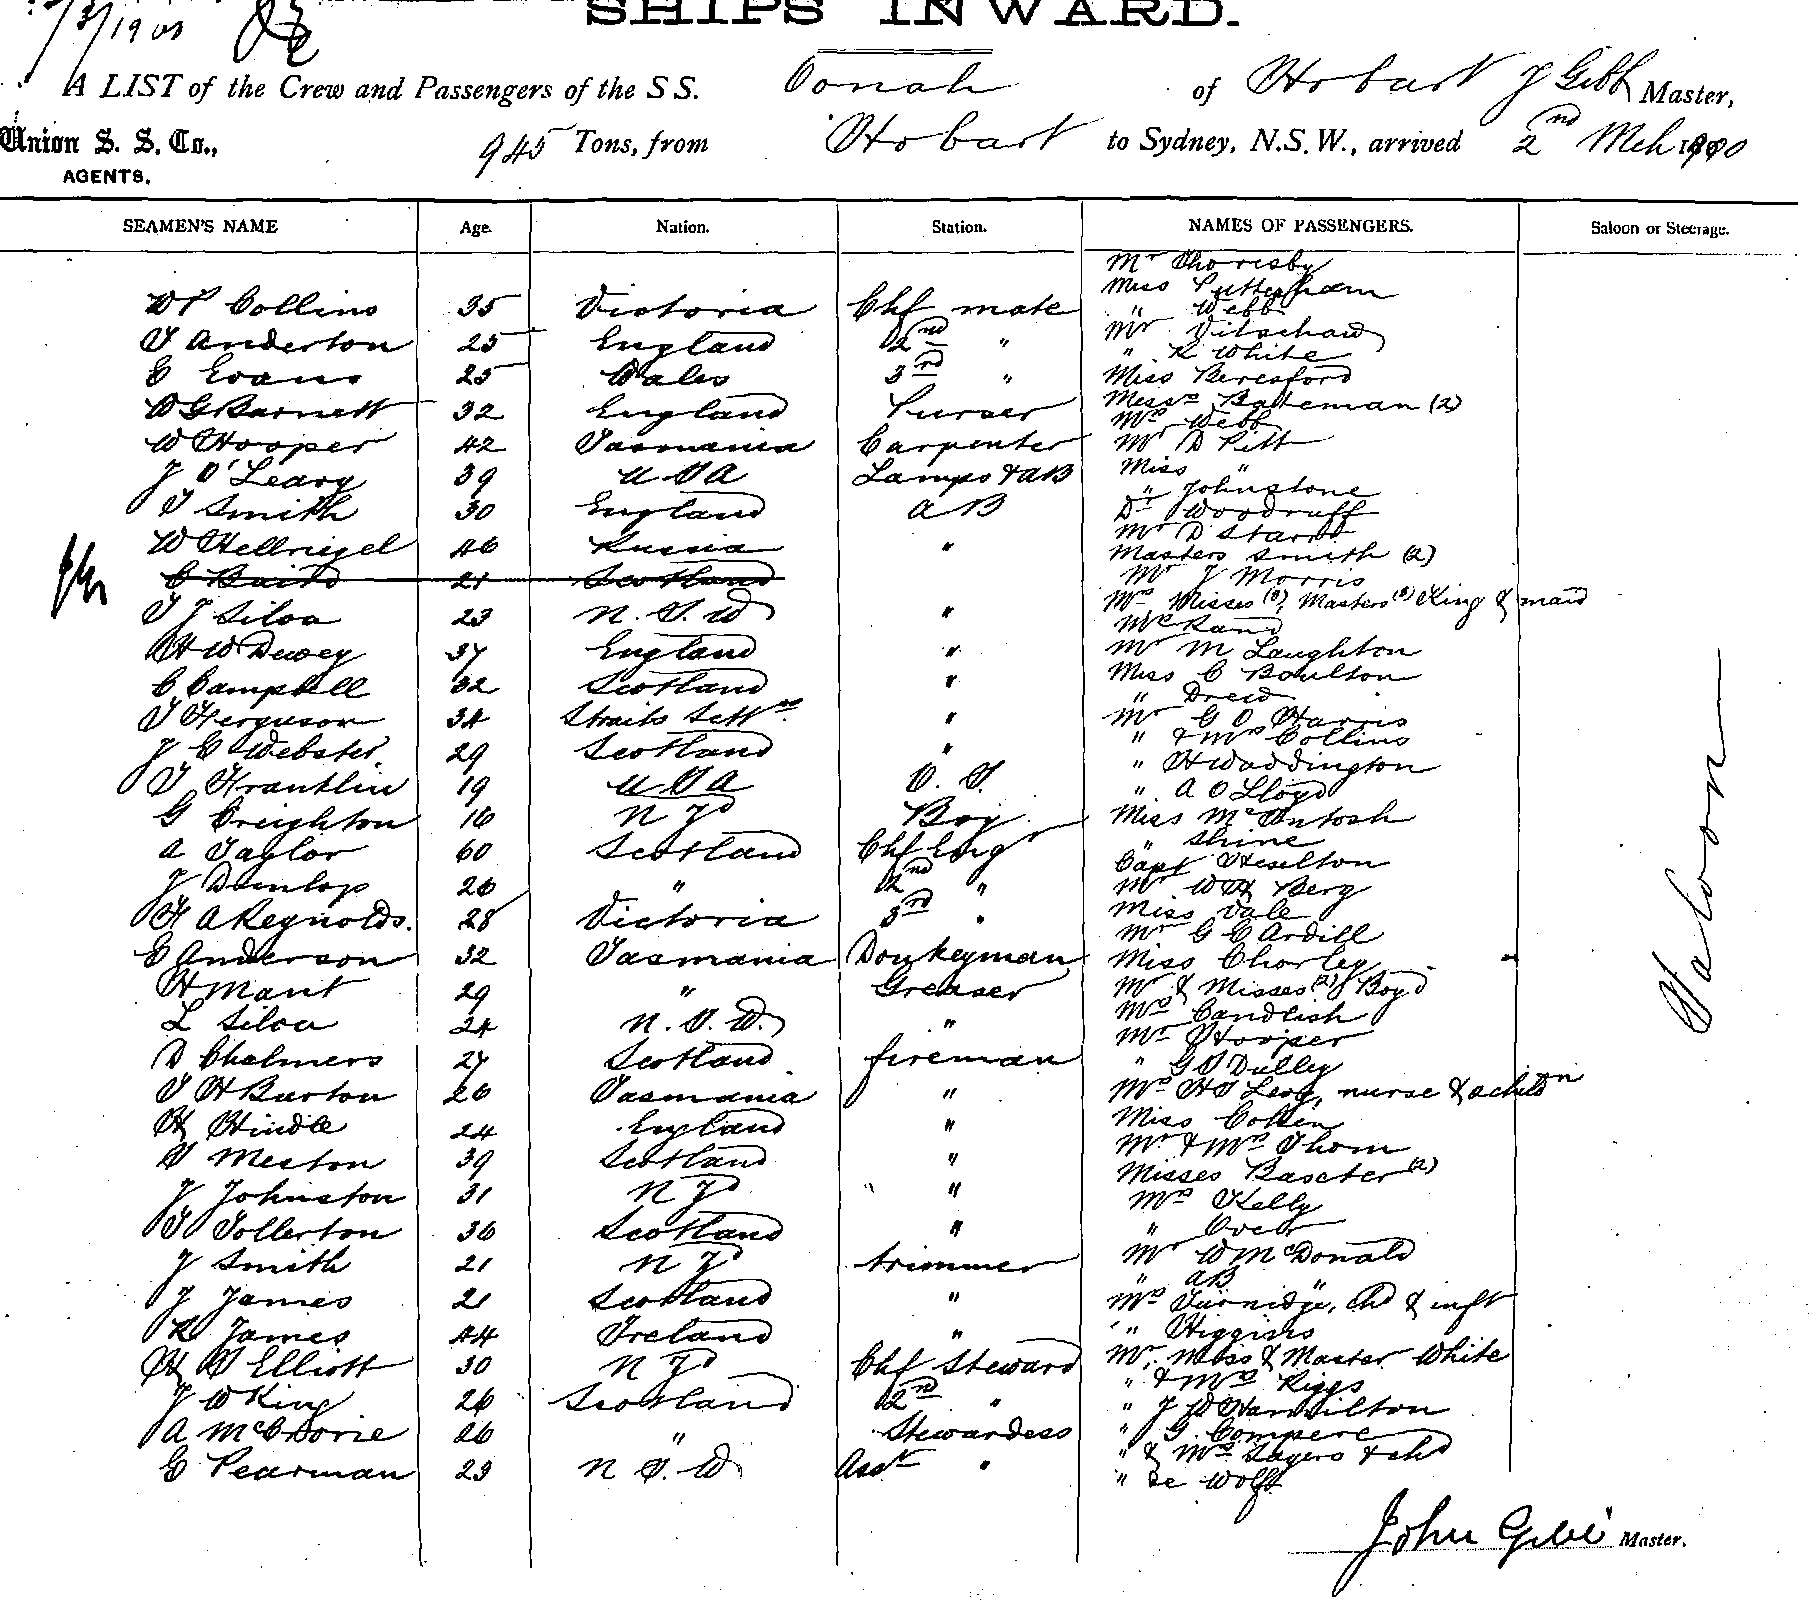 /3/1900
SHIPS INWARD.
A LIST of the Crew and Passengers of the S S. Oonah of Hobart J Gibb Master,
Union S. S. Co., AGENTS. 945 Tons, from Hobart to Sydney, N.S.W., arrived 2nd Mch 1900
SEAMEN'S NAME Age. Nation. Station. NAMES OF PASSENGERS. Saloon or Steerage.
Mr Thoresby
Miss Luttenham
W P Collins 35 Victoria Chf mate " Webb
T Anderton 25 England 2nd " Mr
E Evans 25 Wales 3rd " " R White
Miss Beresford
W G Barnett 32 England Purser Messrs Bateman (2)
Mrs Webb
W Hooper 42 Tasmania Carpenter Mr D Pitt
J O'Leary 39 U S A Lamps & AB Miss "
" Johnstone
T Smith 30 England A B Dr Woodruff
Mr D Starr
W Hellriegel 46 Russia " Masters Smith (2)
C Baird 21 Scotland Mr J Morris
T J Silva 23 N. S. W " Mrs, Misses (3), Masters (3) King & maid
Mr Rand
H W Dewey 37 England " Mr M Laughton
C Campbell 32 Scotland " Miss C Boulton
" Drew
T Ferguson 34 Straits Settmts " Mr G O Harris
J C Webster 29 Scotland " " & Mrs Collins
" H Waddington
T Frantlin 19 U S A O. S. " A O Lloyd
G Creighton 16 N Zd Boy Miss McIntosh
A Taylor 60 Scotland Chf Engr " Shine
Capt Heselton
J Dunlop 26 " 2nd " Mr W H Berg
F A Reynolds. 28 Victoria 3rd " Miss Vale
Mr G C Ardill
C Anderson 32 Tasmania Donkeyman Miss Chorley
H Mant 29 " Greaser Mr & Misses (2) Boyd
Mrs Candlish
L Silva 24 N. S. W. " Mr Hooper
D Chalmers 27 Scotland fireman " G S Dulley
T H Burton 26 Tasmania " Mrs H S Levy, nurse & 2 childrn
H Hindle 24 England " Miss Collin
Mr & Mrs Thom
T Meston 39 Scotland " Misses Baxter (2)
J Johnston 31 N Zd " Mrs Kelly
T Tollerton 36 Scotland " "
Mr W McDonald
J Smith 21 N Zd trimmer " AB "
J James 21 Scotland " Mrs Turnidge, chd & inft
R James 44 Ireland " " Higgins
H S Elliott 30 N Zd Chf Steward Mr, Miss & Master White
" & Mrs Riggs
J W King 26 Scotland 2nd " " J W Hamilton
A McCrorie 26 " Stewardess " G. Compere
" & Mrs Sagers & chd
E Pearman 23 N S. W Asst " " De Wolff
Saloon
John Gibb Master.